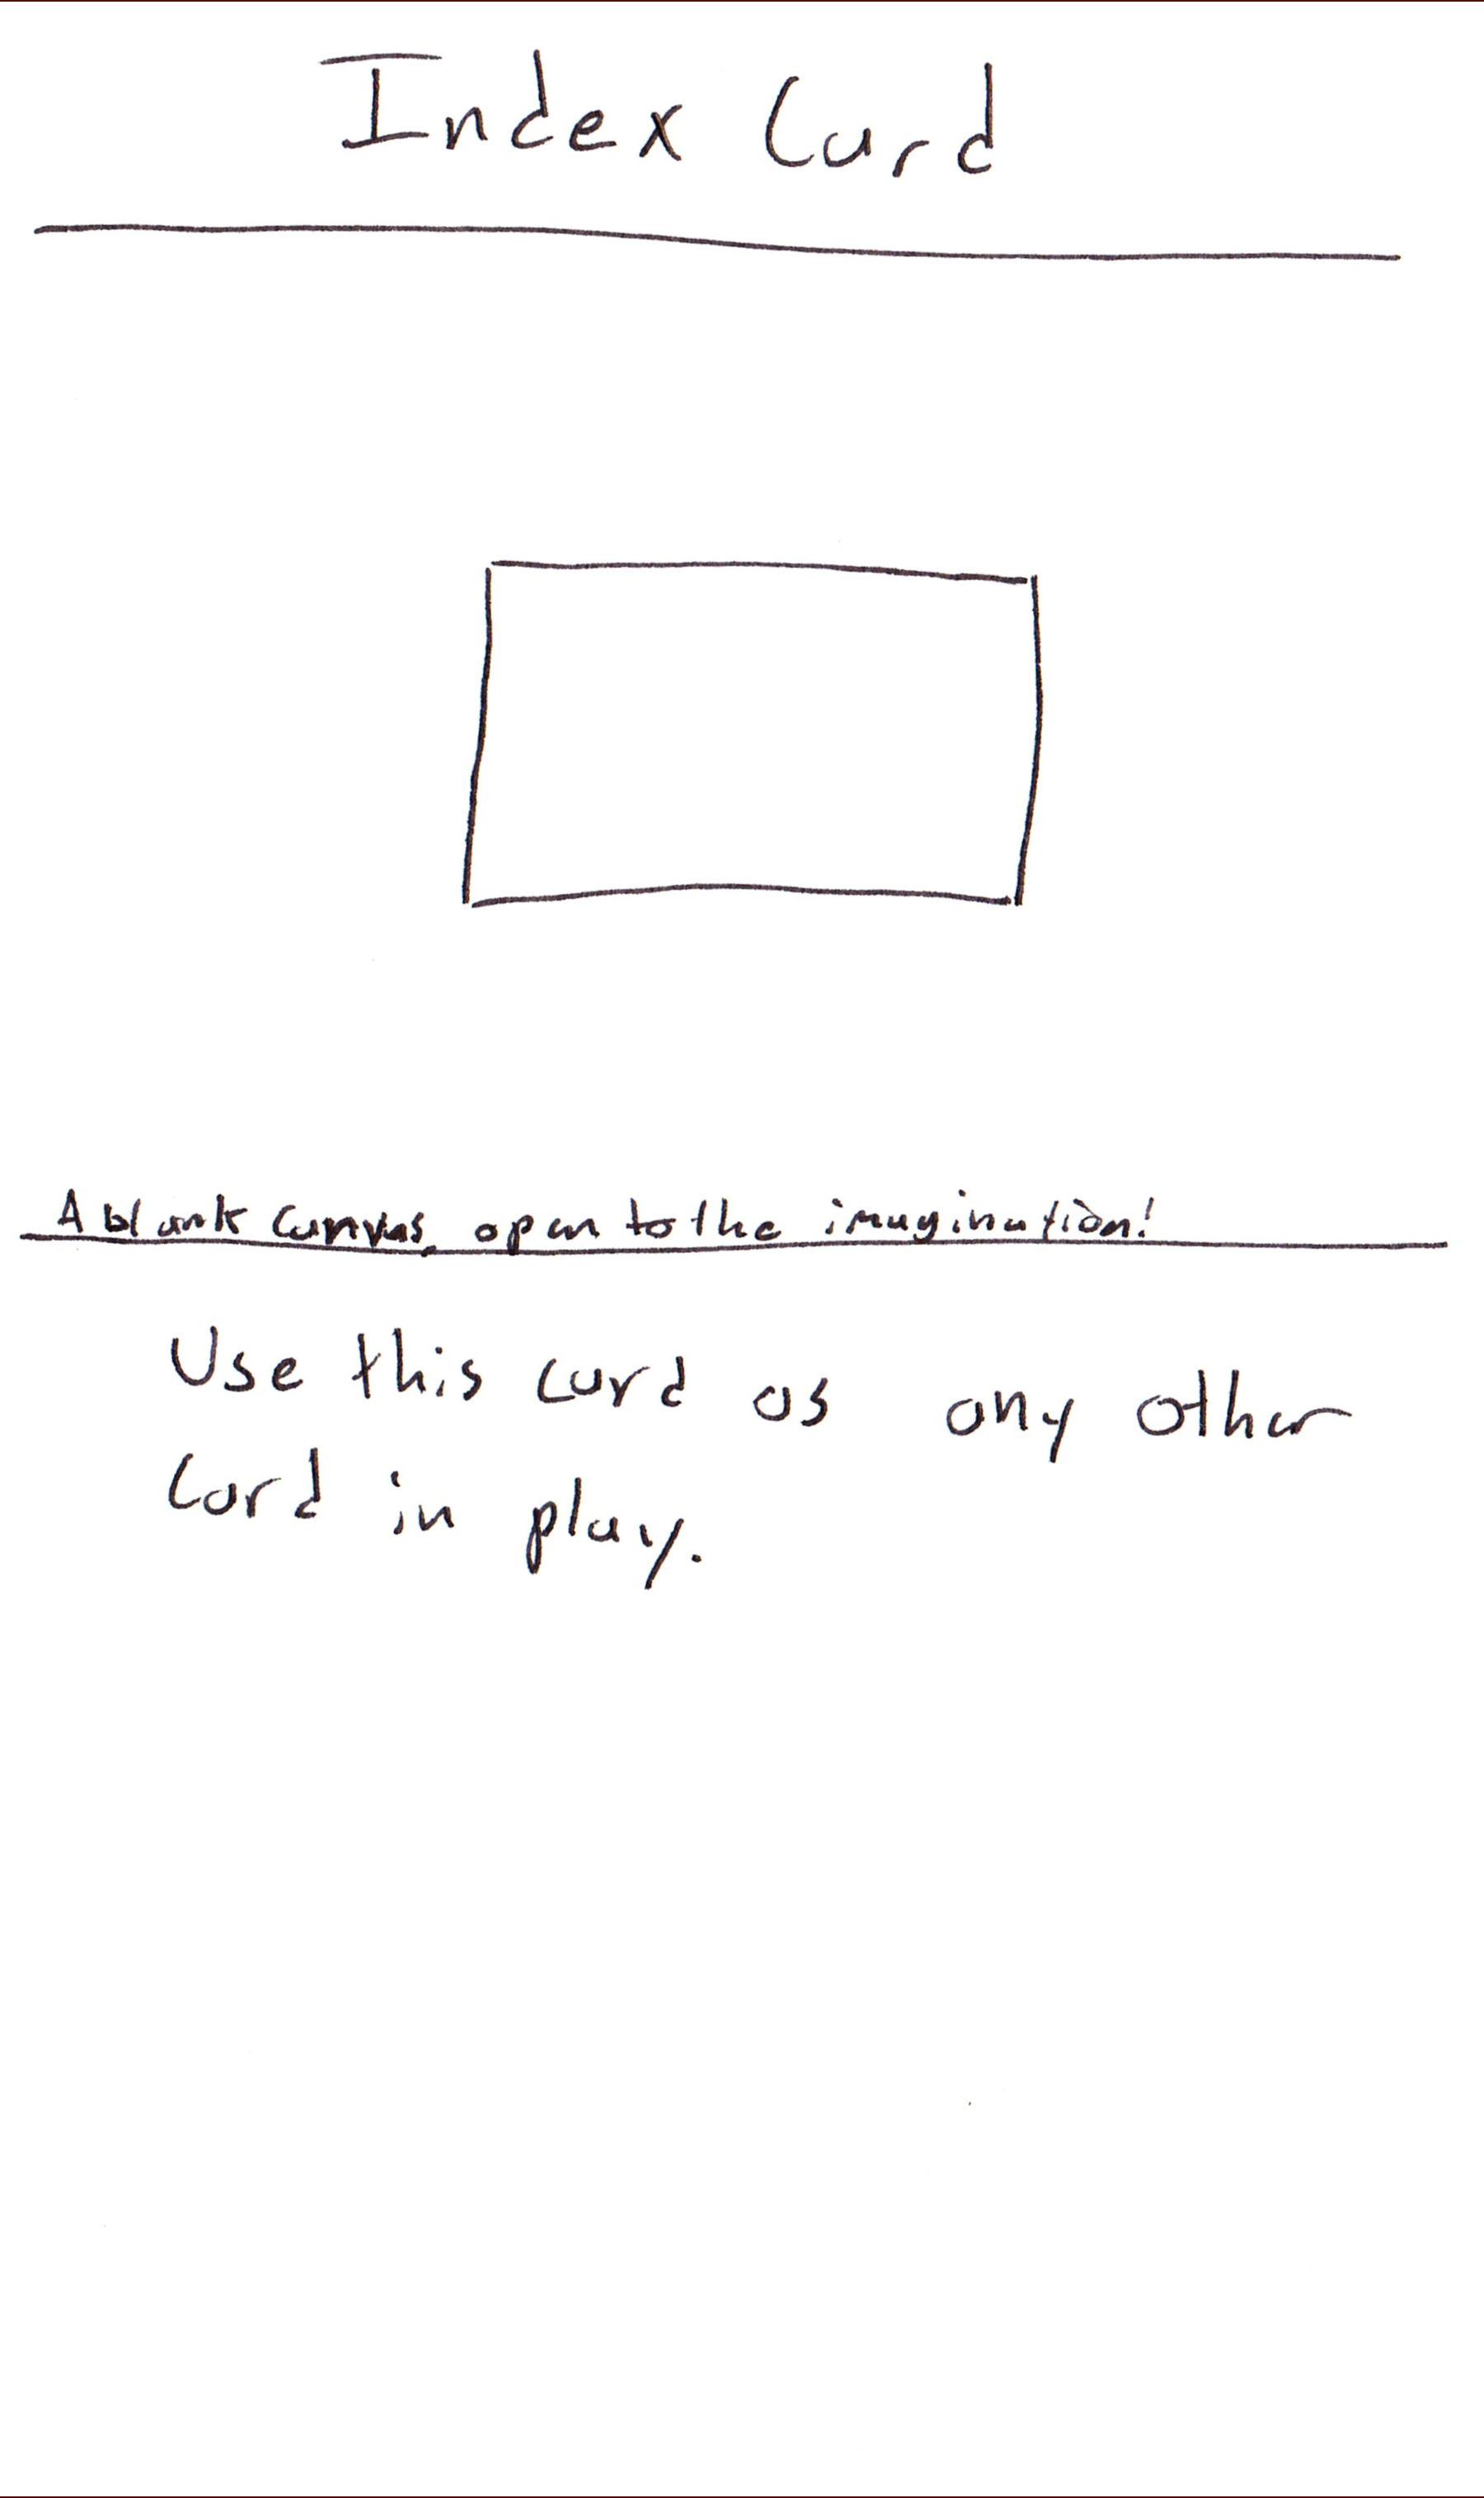 Index Card
A blank canvas, open to the imagination!
Use this card as any other
card in play.